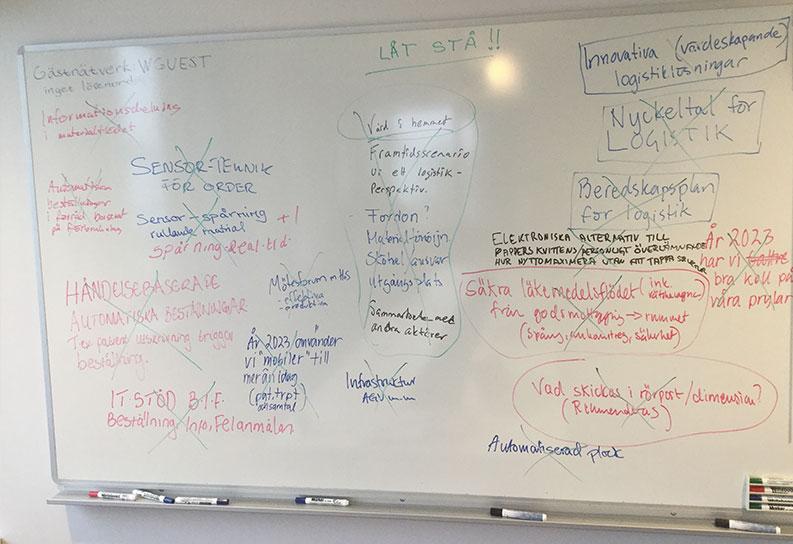 Gästnätverk: WGUEST
inget lösenord
Informationsdelning
i materialflödet
LÅT STÅ !!
Innovativa (värdeskapande)
logistiklösningar
Nyckeltal för
LOGISTIK
Beredskapsplan
för logistik
SENSOR-TEKNIK
FÖR ORDER
Automatiska
beställningar
i förråd baserat
på
Sensor-spårning +1
rullande
spårning-Real-tid.
Vård i hemmet
Framtidsscenario
ur ett logistik-
Perspektiv.
Fordon?
utgångsplats
Sammarbete med
andra aktörer
ELEKTRONISKA ALTERNATIV TILL
PAPPERSKVITTENS/PERSONLIGT ÖVERLÄMNANDE
HUR NYTTOMAXIMERA UTAN ATT TAPPA
År 2023
har vi
bra koll på
våra prylar
HÄNDELSEBASERADE
AUTOMATISKA BESTÄLLNINGAR
T ex patient utskrivning triggar
beställning.
Mötesforum
effektiva
År 2023/använder
vi "mobiler" till
mer än idag
(pat.trpt
Säkra läkemedelsflödet (ink.
från godsmottagning → rummet
säkerhet)
Infrastruktur
AGV m.m
Vad skickas i rörpost/dimension?
IT STÖD B.I.F.
Beställning, Info, Felanmälan
Automatiserad plock